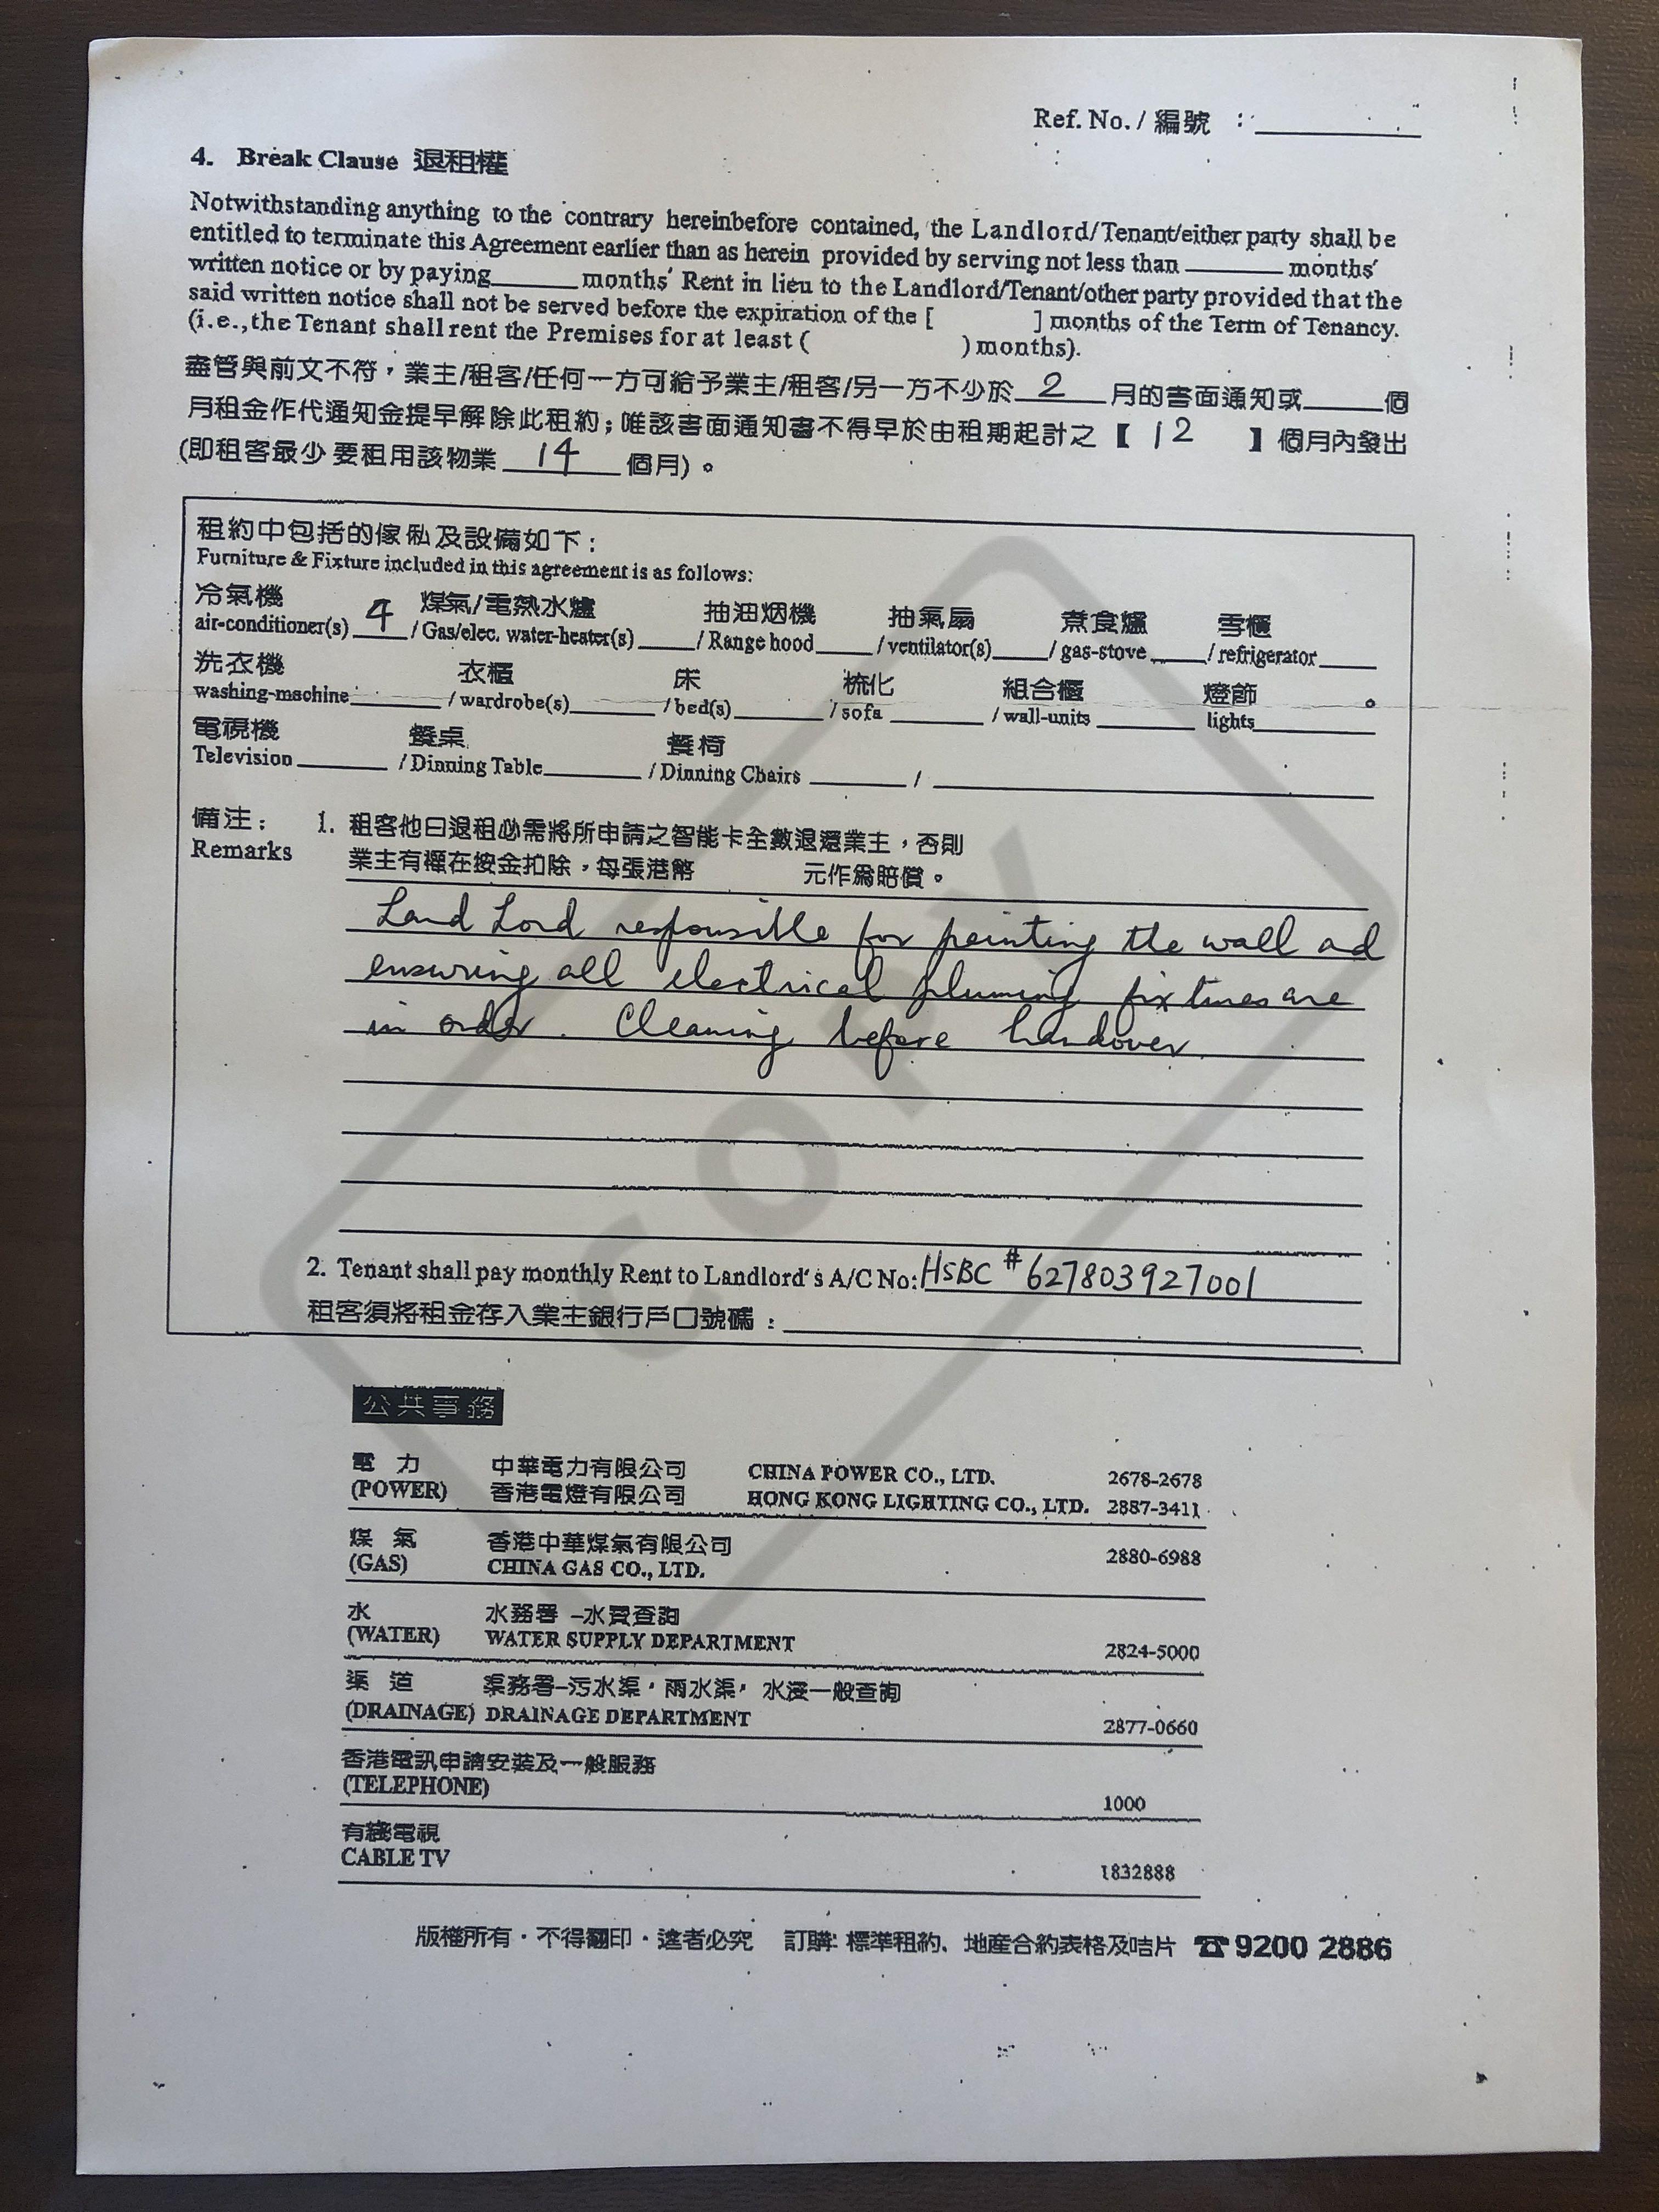 Ref. No. / 編號 : ________
4. Break Clause 退租權
Notwithstanding anything to the contrary hereinbefore contained, the Landlord/Tenant/either party shall be
entitled to terminate this Agreement earlier than as herein provided by serving not less than ______ months'
written notice or by paying______ months' Rent in lieu to the Landlord/Tenant/other party provided that the
said written notice shall not be served before the expiration of the [ ] months of the Term of Tenancy.
(i.e., the Tenant shall rent the Premises for at least ( ) months).
盡管與前文不符，業主/租客/任何一方可給予業主/租客/另一方不少於 2 月的書面通知或____個
月租金作代通知金提早解除此租約；唯該書面通知書不得早於由租期起計之【 12 】個月內發出
(即租客最少要租用該物業 14 個月)。
租約中包括的傢俬及設備如下：
Furniture & Fixture included in this agreement is as follows:
冷氣機 煤氣/電熱水爐 抽油烟機 抽氣扇 煮食爐 雪櫃
air-conditioner(s) 4 / Gas/elec. water-heater(s)____ / Range hood____ / ventilator(s)____ / gas-stove____ / refrigerator____
洗衣機 衣櫃 床 梳化 組合櫃 燈飾
washing-machine______ / wardrobe(s)______ / bed(s)______ / sofa ______ / wall-units ______ lights______。
電視機 餐桌 餐椅
Television ______ / Dinning Table______ / Dinning Chairs ______ / ____________
備注： 1. 租客他日退租必需將所申請之智能卡全數退還業主，否則
Remarks 業主有權在按金扣除，每張港幣 元作為賠償。
Land Lord responsible for painting the wall ad
ensuring all electrical pluming fixtures are
in order. Cleaning before handover.
2. Tenant shall pay monthly Rent to Landlord's A/C No: HSBC # 627803927001
租客須將租金存入業主銀行戶口號碼：____________
COPY
公共事務
電 力 中華電力有限公司 CHINA POWER CO., LTD. 2678-2678
(POWER) 香港電燈有限公司 HONG KONG LIGHTING CO., LTD. 2887-3411
煤 氣 香港中華煤氣有限公司
(GAS) CHINA GAS CO., LTD. 2880-6988
水 水務署 –水費查詢
(WATER) WATER SUPPLY DEPARTMENT 2824-5000
渠 道 渠務署–污水渠，雨水渠，水浸一般查詢
(DRAINAGE) DRAINAGE DEPARTMENT 2877-0660
香港電訊申請安裝及一般服務
(TELEPHONE) 1000
有綫電視
CABLE TV 1832888
版權所有・不得翻印・違者必究 訂購: 標準租約、地產合約表格及咭片 ☎ 9200 2886